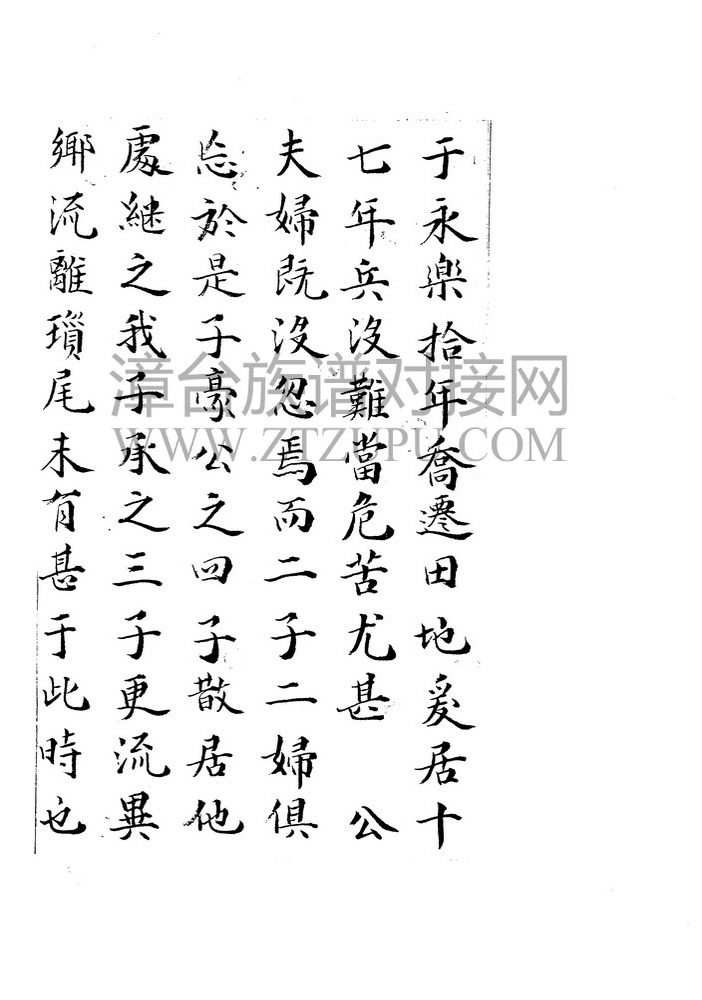 于永樂拾年喬遷田地爰居十
七年兵没難當危苦尤甚　公
夫婦既没忽焉而二子二婦俱
㤀於是子豪公之四子散居他
處継之我子承之三子更流異
鄉流離瑣尾未有甚于此時也
漳台族谱对接网
WWW.ZTZUPU.COM